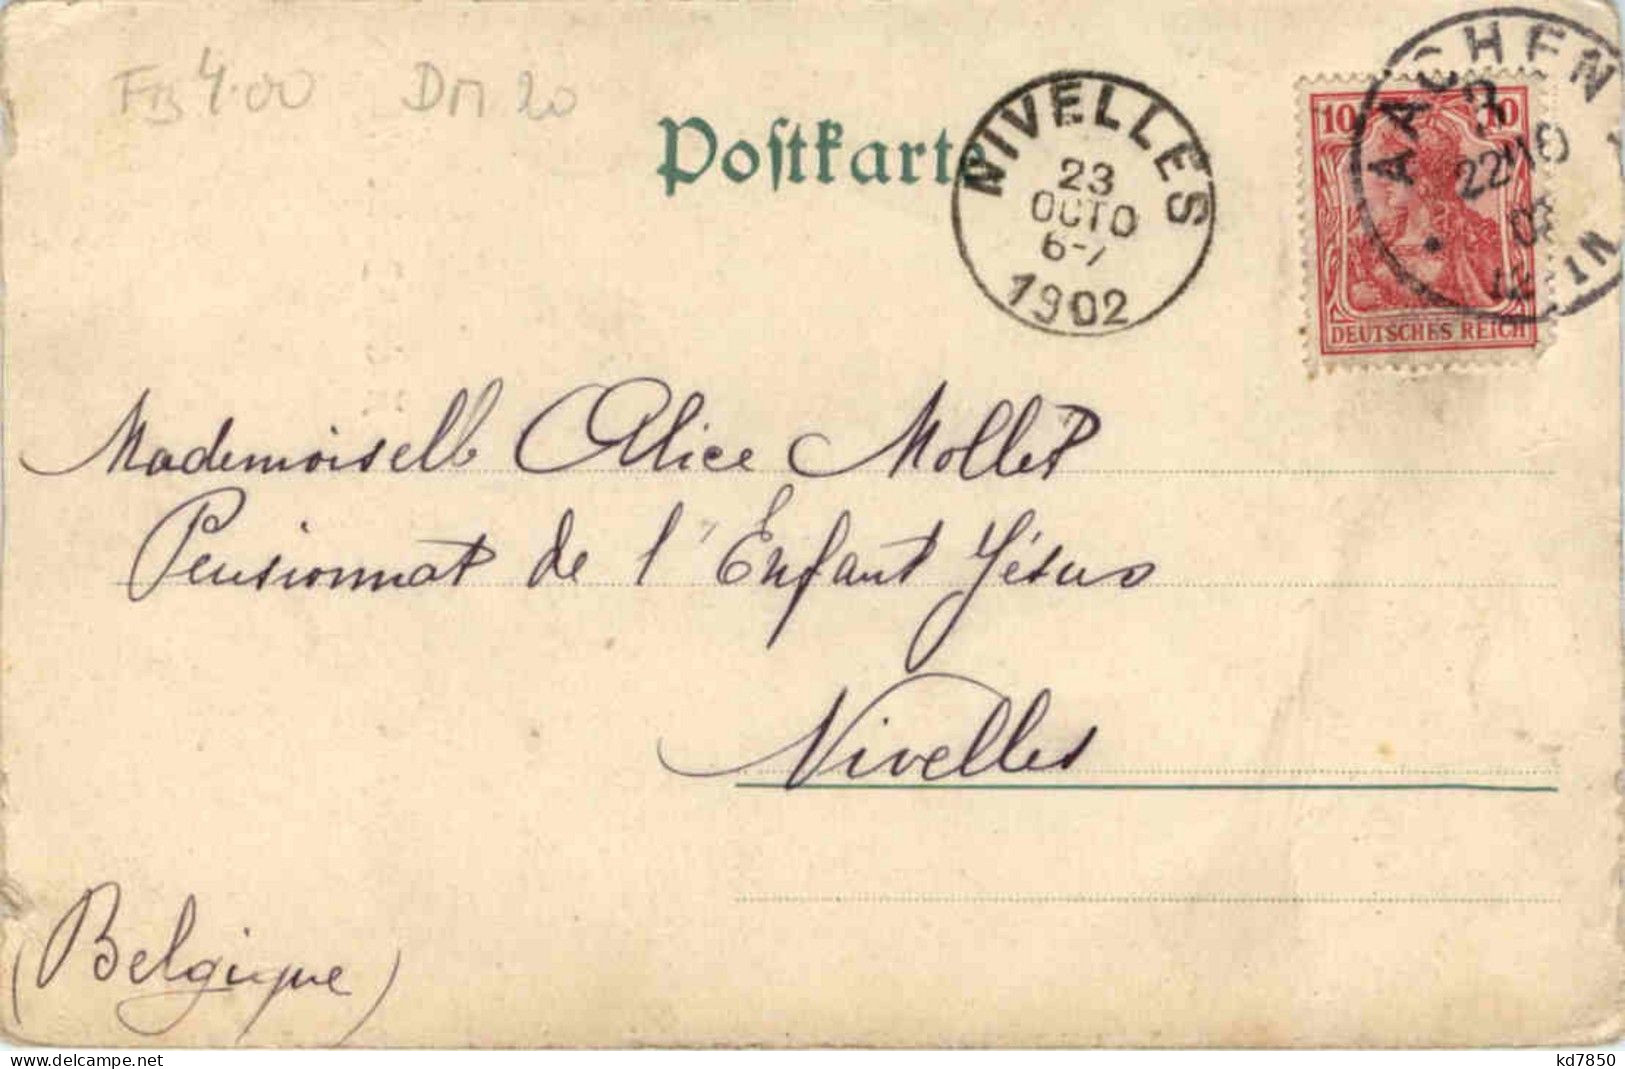 Fb 4.00 DM 20
Poſtkarte
NIVELLES
23
OCTO
6-7
1902
AACHEN
22/10
02
10 10
DEUTSCHES REICH
Mademoiselle Alice Mollet
Pensionnat de l'Enfant Jésus
Nivelles
(Belgique)
www.delcampe.net
kd7850